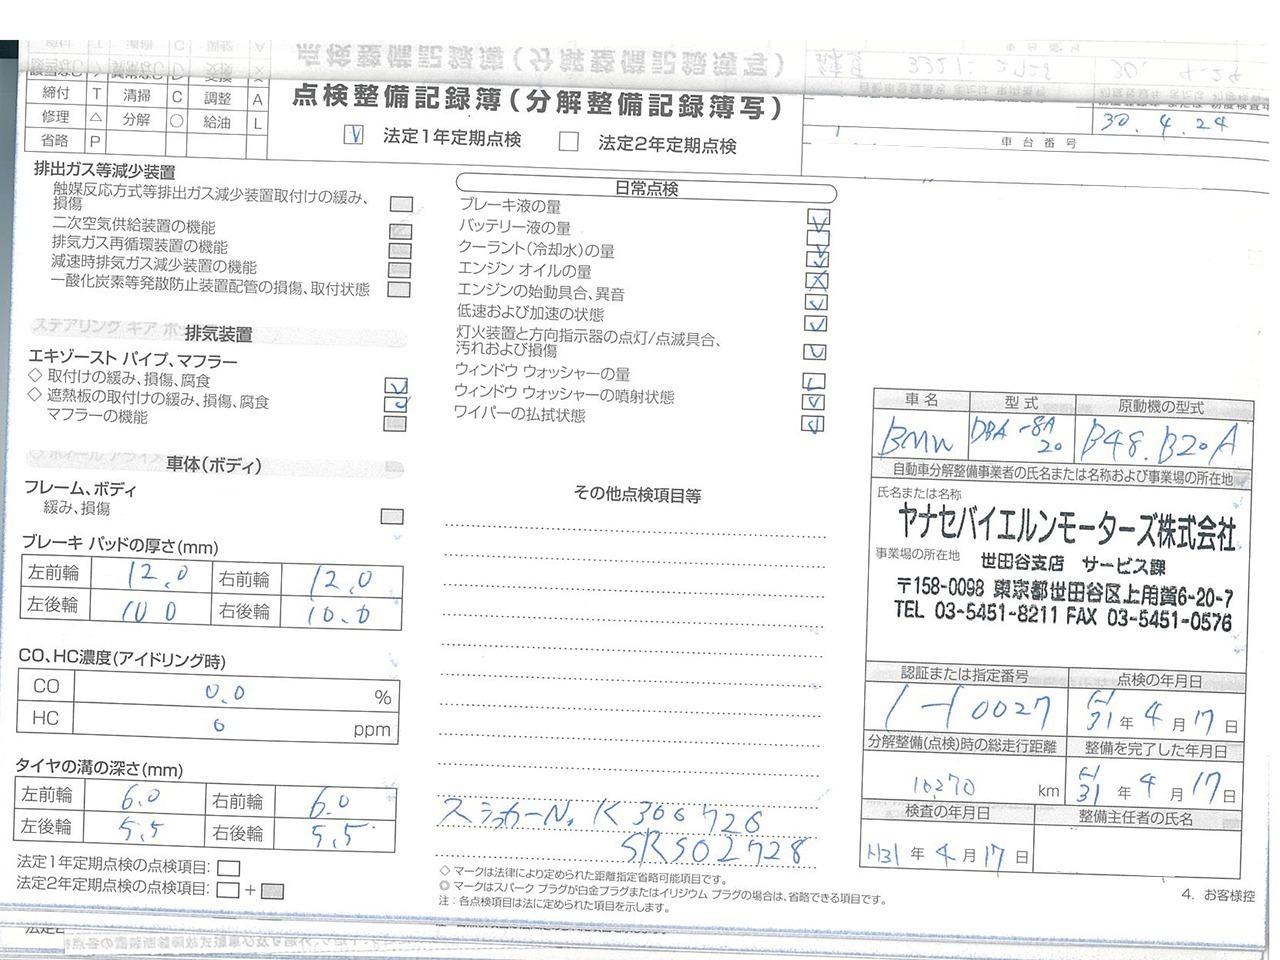 締付 T 清掃 C 調整 A
修理 △ 分解 ○ 給油 L
省略 P
点検整備記録簿(分解整備記録簿写)
法定1年定期点検 法定2年定期点検
30. 4. 24
車台番号
排出ガス等減少装置
触媒反応方式等排出ガス減少装置取付けの緩み、
損傷
二次空気供給装置の機能
排気ガス再循環装置の機能
減速時排気ガス減少装置の機能
一酸化炭素等発散防止装置配管の損傷、取付状態
排気装置
エキゾースト パイプ、マフラー
◇ 取付けの緩み、損傷、腐食
◇ 遮熱板の取付けの緩み、損傷、腐食
マフラーの機能
車体(ボディ)
フレーム、ボディ
緩み、損傷
ブレーキ パッドの厚さ(mm)
左前輪 12.0 右前輪 12.0
左後輪 10.0 右後輪 10.0
CO、HC濃度(アイドリング時)
CO 0.0 %
HC 0 ppm
タイヤの溝の深さ(mm)
左前輪 6.0 右前輪 6.0
左後輪 5.5 右後輪 5.5
法定1年定期点検の点検項目:
法定2年定期点検の点検項目: +
日常点検
ブレーキ液の量
バッテリー液の量
クーラント(冷却水)の量
エンジン オイルの量
エンジンの始動具合、異音
低速および加速の状態
灯火装置と方向指示器の点灯/点滅具合、
汚れおよび損傷
ウィンドウ ウォッシャーの量
ウィンドウ ウォッシャーの噴射状態
ワイパーの払拭状態
その他点検項目等
ステッカーNo. K 366726
SRS02728
◇ マークは法律により定められた距離指定省略可能項目です。
◎ マークはスパーク プラグが白金プラグまたはイリジウム プラグの場合は、省略できる項目です。
注:各点検項目は法に定められた項目を示します。
車名 型式 原動機の型式
BMW DBA-8A20 B48.B20A
自動車分解整備事業者の氏名または名称および事業場の所在地
氏名または名称
ヤナセバイエルンモーターズ株式会社
事業場の所在地 世田谷支店 サービス課
〒158-0098 東京都世田谷区上用賀6-20-7
TEL 03-5451-8211 FAX 03-5451-0576
認証または指定番号 点検の年月日
1-10027 H31年 4月 17日
分解整備(点検)時の総走行距離 整備を完了した年月日
10,270 km H31年 4月 17日
検査の年月日 整備主任者の氏名
H31年 4月 17日
4. お客様控